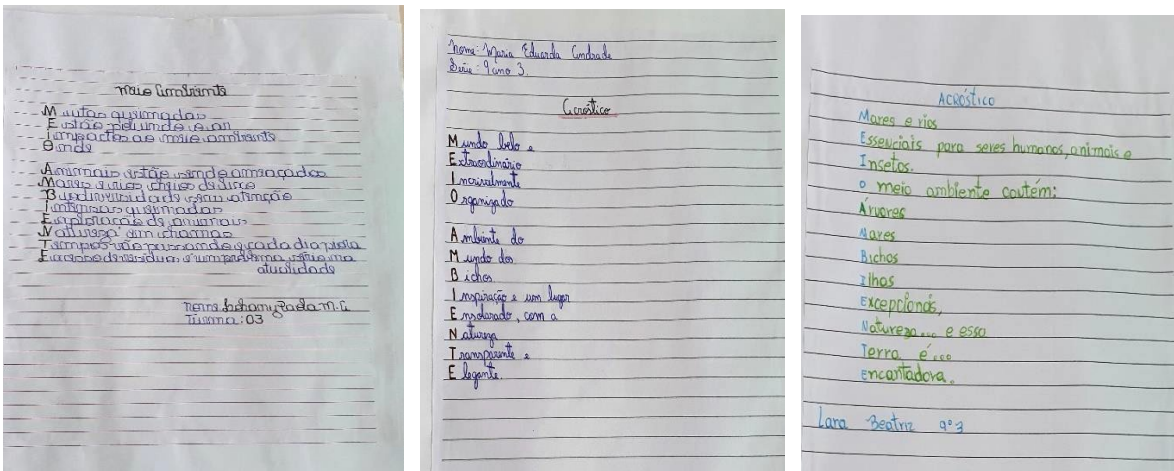 Meio Ambiente
Muitas queimadas
Estão poluindo o ar
Impactos ao meio ambiente
Onde
Animais estão sendo ameaçados
Mares e rios cheios de lixo
Biodiversidade sem atenção
Intensas queimadas
Exploração de animais
Natureza em chamas
Tempos vão passando e cada dia piora
Excesso de resíduos é um problema sério na
atualidade
Nome: Paola M.G
Turma: 03
Nome: Maria Eduarda Andrade
Série: 9 ano 3.
Acróstico
Mundo belo e
Extraordinário
Incrivelmente
Organizado
Ambiente do
Mundo dos
Bichos
Inspiração e um lugar
Ensolarado, com a
Natureza
Transparente e
Elegante.
ACRÓSTICO
Mares e rios
Essenciais para seres humanos, animais e
Insetos.
O meio ambiente contém:
Árvores
Mares
Bichos
Ilhas
Excepcionais,
Natureza... e essa
Terra é...
Encantadora.
Lara Beatriz 9º3